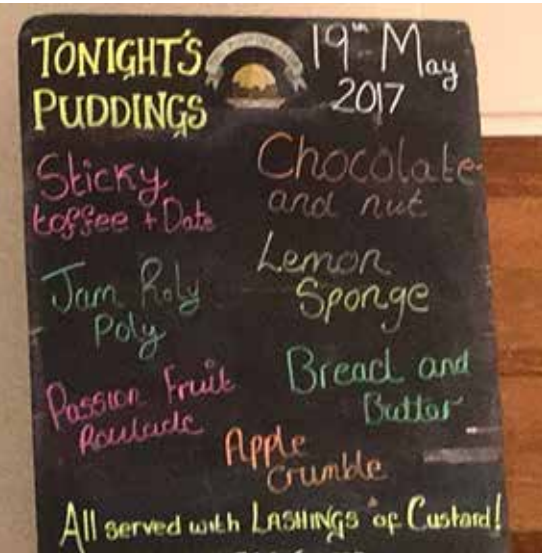 TONIGHT'S
PUDDINGS
19th May
2017
Sticky
toffee + Date
Chocolate
and nut
Jam Roly
Poly
Lemon
Sponge
Passion Fruit
Roulade
Bread and
Butter
Apple
Crumble
All served with LASHINGS of Custard!